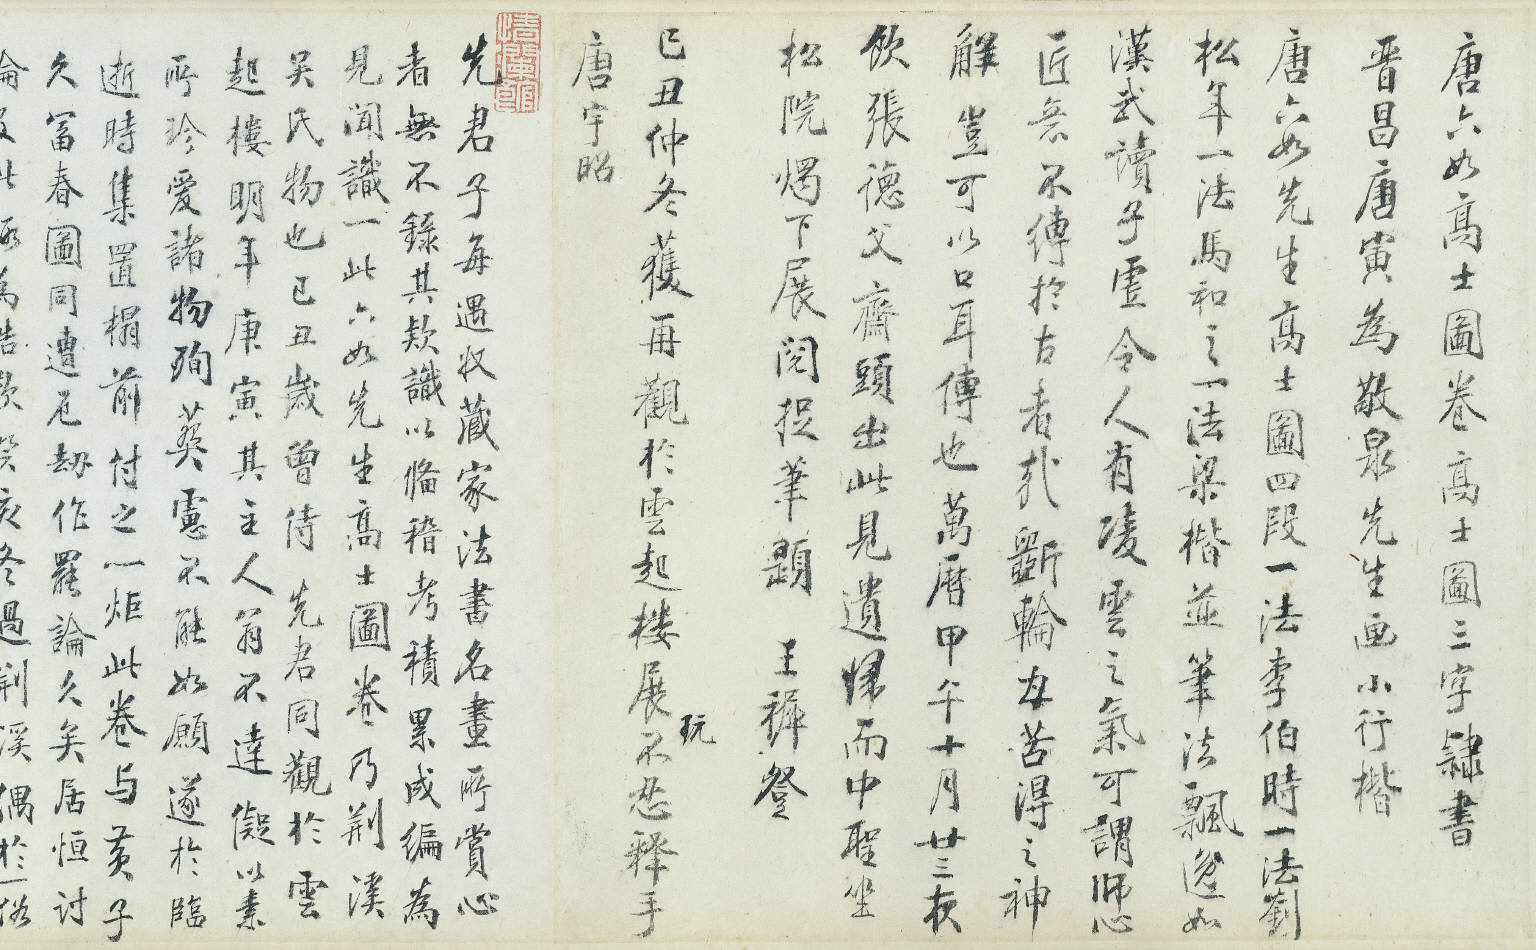 唐六如高士圖卷高士圖三字隸書
晋昌唐寅為敬泉先生画小行楷
唐六如先生高士圖四段一法李伯時一法劉
松年一法馬和之一法梁楷並筆法飄逸如
漢武讀子虛令人有凌雲之氣可謂師心
匠意不傳於古者矣斵輪甘苦得之神
解豈可以口耳傳也萬曆甲午十月廿三夜
飲張德父齋頭出此見遺歸而中聖坐
松院燭下展閱捉筆題 王穉登
己丑仲冬獲再觀於雲起樓展玩不忍释手
唐宇昭
清瀾館
先君子每遇収藏家法書名畫所賞心
者無不錄其欵識以俻稽考積累成编為
見聞識一此六如先生高士圖卷乃荆溪
吴氏物也己丑歲曾侍先君同觀於雲
起樓明年庚寅其主人翁不達儗以素
所珍愛諸物殉葬慮不能如願遂於臨
逝時集置榻前付之一炬此卷与黄子
久富春圖同遭厄劫作罷論久矣居恒討
論及此為浩歎癸亥冬過荆溪偶於一俗